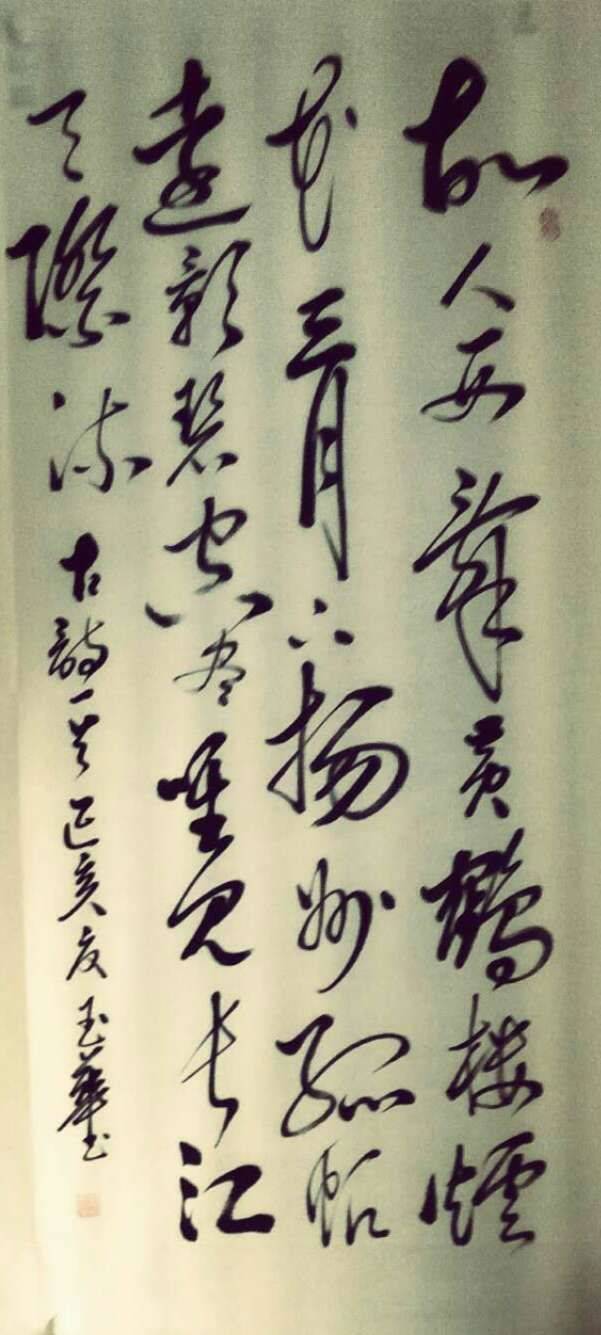 故人西辭黄鶴楼煙
花三月下揚州孤帆
遠影碧空尽唯见长江
天際流 古詩一首 己亥夏 玉華书